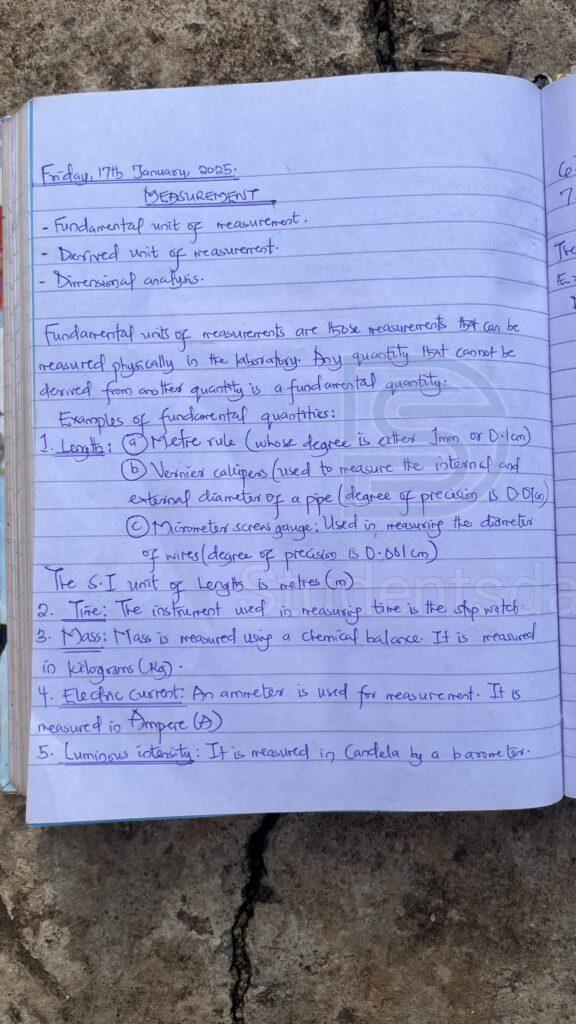 Friday, 17th January, 2025.
MEASUREMENT
- Fundamental unit of measurement.
- Derived unit of measurement.
- Dimensional analysis.
Fundamental units of measurements are those measurements that can be
measured physically in the laboratory. Any quantity that cannot be
derived from another quantity is a fundamental quantity.
Examples of fundamental quantities:
1. Length: (a) Metre rule (whose degree is either 1mm or 0.1cm)
(b) Vernier calipers (used to measure the internal and
external diameter of a pipe (degree of precision is 0.01cm)
(c) Micrometer screw gauge: Used in measuring the diameter
of wires (degree of precision is 0.001cm)
The S.I unit of Length is metres (m)
2. Time: The instrument used in measuring time is the stop watch
3. Mass: Mass is measured using a chemical balance. It is measured
in kilograms (Kg).
4. Electric Current: An ammeter is used for measurement. It is
measured in Ampere (A)
5. Luminous intensity: It is measured in Candela by a barometer.
7
The